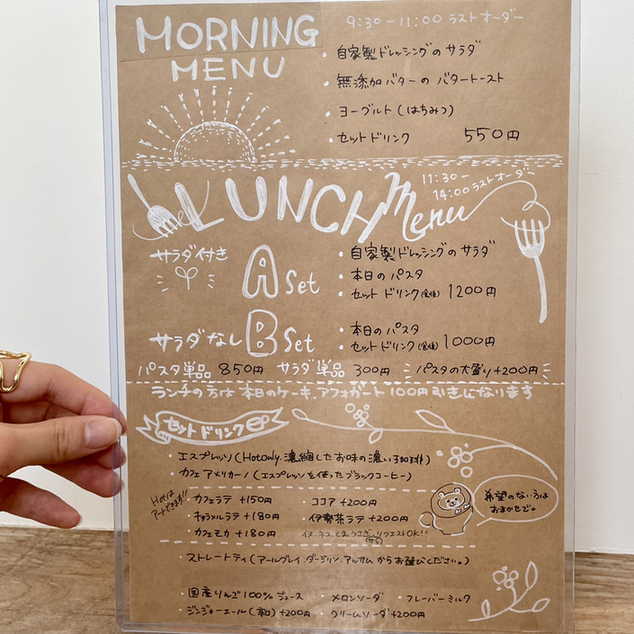 MORNING MENU
9:30-11:00 ラストオーダー
・自家製ドレッシングのサラダ
・無添加バターの バタートースト
・ヨーグルト(はちみつ)
・セットドリンク 550円
LUNCH Menu
11:30-
14:00ラストオーダー
サラダ付き
A Set
・自家製ドレッシングのサラダ
・本日のパスタ
・セットドリンク 1200円
サラダなし
B Set
・本日のパスタ
・セットドリンク 1000円
パスタ単品 850円 サラダ単品 300円 パスタの大盛り+200円
ランチの方は本日のケーキ、アフォガート100円引きになります
セットドリンク
・エスプレッソ(Hotonly 濃縮したお味の濃い珈琲)
・カフェアメリカーノ(エスプレッソを使ったブラックコーヒー)
Hotは
アートできます!!
・カフェラテ +150円 ・ココア +200円
・キャラメルラテ +180円 ・伊勢茶ラテ +200円
・カフェモカ +180円 イヌ、ネコ、くま、うさぎ、リクエストOK!!
希望のない方は
おまかせで。
・ストレートティ(アールグレイ ダージリン、アッサム からお選びください。)
・国産りんご100%ジュース ・メロンソーダ ・フレーバーミルク
・ジンジャーエール(辛口)+200円 ・クリームソーダ+200円